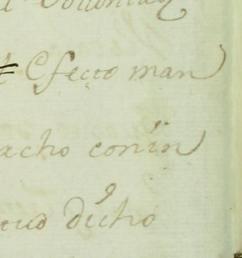 Voluntad
Efecto man
acho conin
dicho